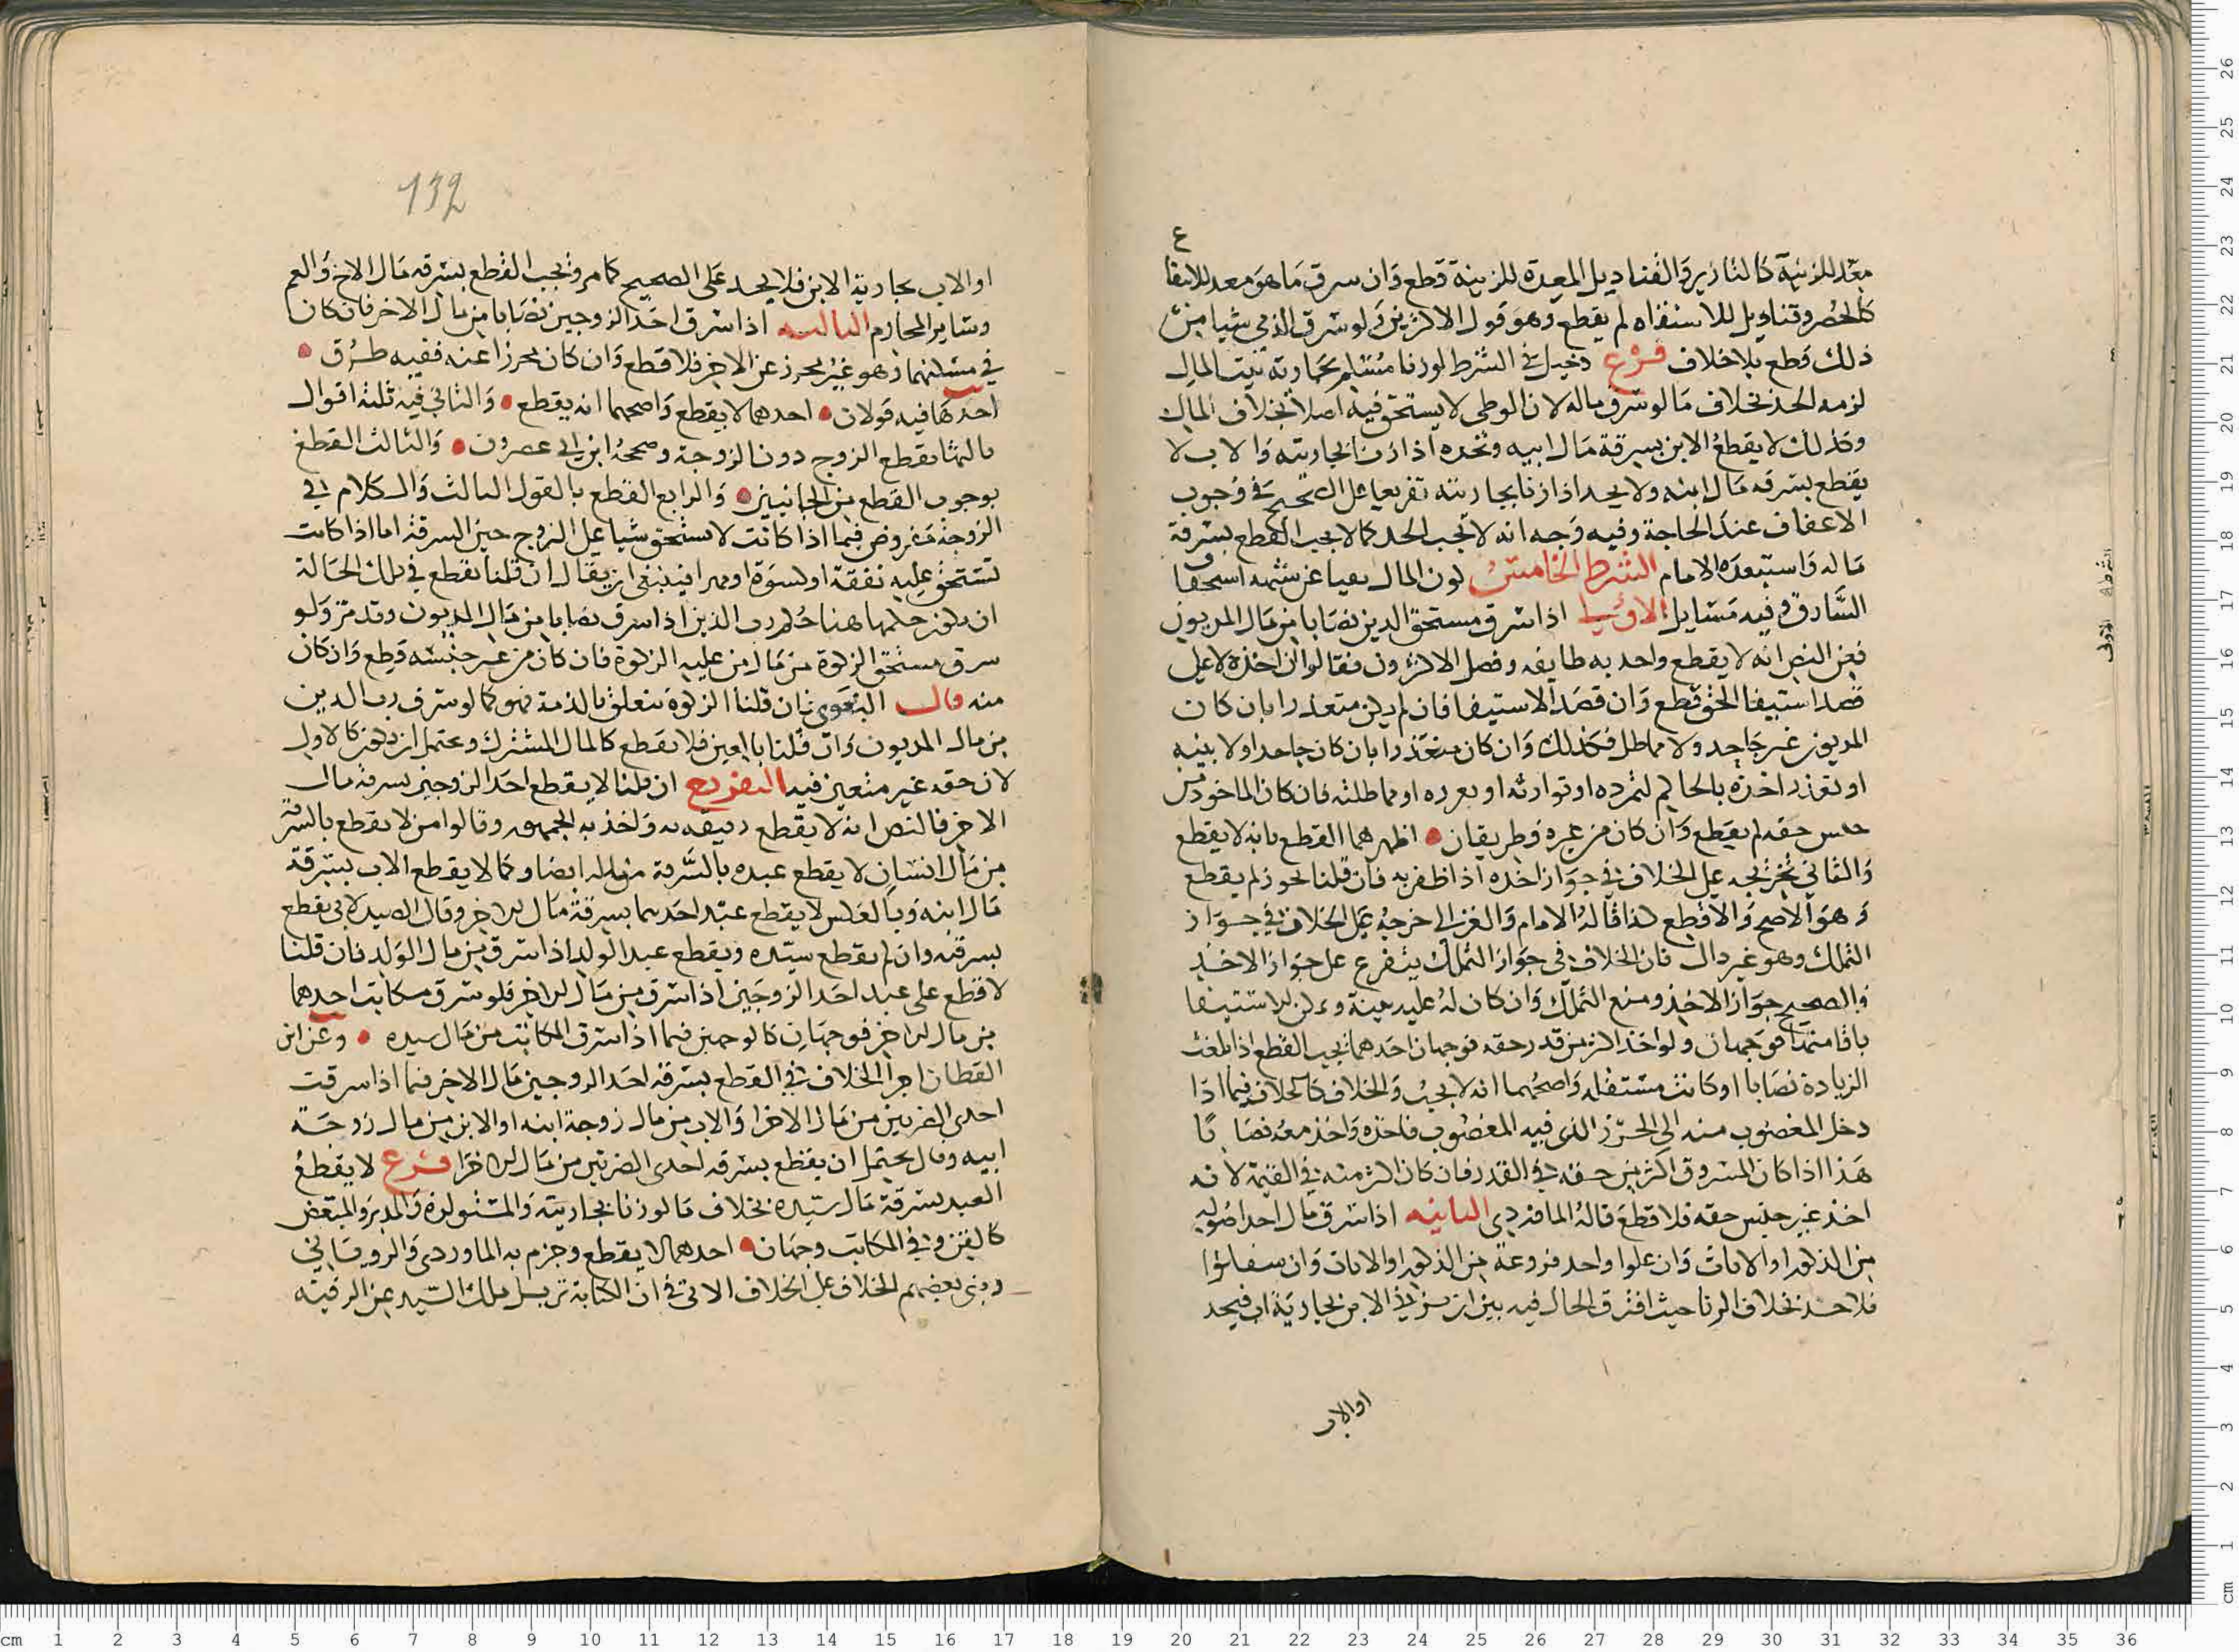 معد للزينة كالتازير والقناديل المعدة للزينة قطع وان سرق ما هو معد للانتفا
ع
كالحصر وقناديل للاستضاه لم يقطع وهو قول الاكثرين ولو سرق الذمي شيا من
ذلك قطع بلا خلاف فرع دخيل في الشرط لو زنا مسلم بجارية بيت المال
لزمه الحد بخلاف ما لو سرق ماله لان الوطى لا يستحق فيه اصلا بخلاف المال
وكذلك لا يقطع الابن بسرقة مال ابيه ويحد اذا زنا بجاريته والاب لا
يقطع بسرقه مال ابنه ولا يحد اذا زنا بجاريته تفريعا على الصحيح في وجوب
الاعفاف عند الحاجة وفيه وجه انه لا يجب الحد كما لا يجب القطع بسرقة
ماله واستبعده الامام الشرط الخامس كون المال نقيا عن شبهه استحقاق
السارق وفيه مسايل الاولى اذا سرق مستحق الدين نصابا من مال المديون
فعن النص انه لا يقطع واخذ به طايفه وفصل الاكثرون فقالوا ان اخذه لا على
قصد استيفا الحق قطع وان قصد الاستيفا فان لم يكن متعذرا بان كان
المديون غير جاحد ولا مماطل فكذلك وان كان متعذرا بان كان جاحدا ولا بينه
او تعذر اخذه بالحاكم لتمرده او تواريه او تعززه او مماطلته فان كان الماخوذ من
جنس حقه لم يقطع وان كان من غيره فطريقان اظهرهما القطع بانه لا يقطع
والثاني تخريجه على الخلاف في جواز اخذه اذا ظفر به فان قلنا يجوز لم يقطع
وهو الاصح والا قطع كذا قاله الامام والغزالي خرجه على الخلاف في جواز
التملك وهو غير دال فان الخلاف في جواز التملك يتفرع على جواز الاخذ
والصحيح جواز الاخذ ومنع التملك وان كان له عليه بينة وامكن الاستيفا
باقامتها فوجهان ولو اخذ اكثر من قدر حقه فوجهان احدهما يجب القطع اذا بلغت
الزيادة نصابا او كانت مستقله واصحهما انه لا يجب والخلاف كالخلاف فيما اذا
دخل المغصوب منه الى الحرز الذي فيه المغصوب فاخذه واخذ معه نصابا
هذا اذا كان المسروق اكثر من حقه في القدر فان كان اكثر منه في القيمة لانه
اخذ غير جنس حقه فلا قطع قاله الماوردي الثانيه اذا سرق مال احد اصوله
من الذكور او الاناث وان علوا واحد فروعه من الذكور او الاناث وان سفلوا
فلا حد بخلاف الزنا حيث افترق الحال فيه بين ان يزني الابن بجارية اب فيحد
او الاب
132
او الاب بجارية الابن فلا يحد على الصحيح كما مر ويجب القطع بسرقه مال الاخ والعم
وساير المحارم الثالثه اذا سرق احد الزوجين نصابا من مال الاخر فان كان
في مسكنهما وهو غير محرز عن الاخر فلا قطع وان كان محرزا عنه ففيه طرق
احدها فيه قولان احدهما لا يقطع واصحهما انه يقطع والثاني فيه ثلثة اقوال
ثالثها يقطع الزوج دون الزوجة وصححه ابن ابي عصرون والثالث القطع
بوجوب القطع من الجانبين والرابع القطع بالقول الثالث والكلام في
الزوجة مفروض فيما اذا كانت لا تستحق شيا على الزوج حين السرقة اما اذا كانت
تستحق عليه نفقة او كسوة او مهرا فينبغي ان يقال ان قلنا تقطع في تلك الحالة
ان يكون حكمها هنا حكم رب الدين اذا سرق نصابا من مال المديون وقد مر ولو
سرق مستحق الزكوة من مال من عليه الزكوة فان كان من غير جنسه قطع وان كان
منه قال البغوى ان قلنا الزكوة تتعلق بالذمة فهو كما لو سرق رب الدين
من مال المديون وان قلنا بالعين فلا يقطع كالمال المشترك ويحتمل ان يكون كالاول
لان حقه غير متعين فيه التفريع ان قلنا لا يقطع احد الزوجين بسرقة مال
الاخر فالنص انه لا يقطع رقيقه به واخذ به الجمهور وقالوا من لا يقطع بالسرقة
من مال انسان لا يقطع عبده بالسرقة من ماله ايضا وكما لا يقطع الاب بسرقة
مال ابنه وبالعكس لا يقطع عبد احدهما بسرقة مال الاخر وقال الصيدلاني يقطع
بسرقته وان لم يقطع سيده ويقطع عبد الولد اذا سرق من مال الولد فان قلنا
لا قطع على عبد احد الزوجين اذا سرق من مال الاخر فلو سرق مكاتب احدهما
من مال الاخر فوجهان كالوجهين فيما اذا سرق المكاتب من مال سيده وعن ابن
القطان اجرا الخلاف في القطع بسرقة احد الزوجين مال الاخر فيما اذا سرقت
احدى الضرتين من مال الاخرا والاب من مال زوجة ابنه او الابن من مال زوجة
ابيه وقال يحتمل ان يقطع بسرقه احدى الضرتين من مال الاخرا فرع لا يقطع
العبد بسرقة مال سيده بخلاف ما لو زنا بجاريته والمستولدة والمدبر والمبعض
كالقن وفي المكاتب وجهان احدهما لا يقطع وجزم به الماوردي والروياني
وبنى بعضهم الخلاف على الخلاف الاتي في ان الكتابة تزيل ملك السيد عن الرقبة